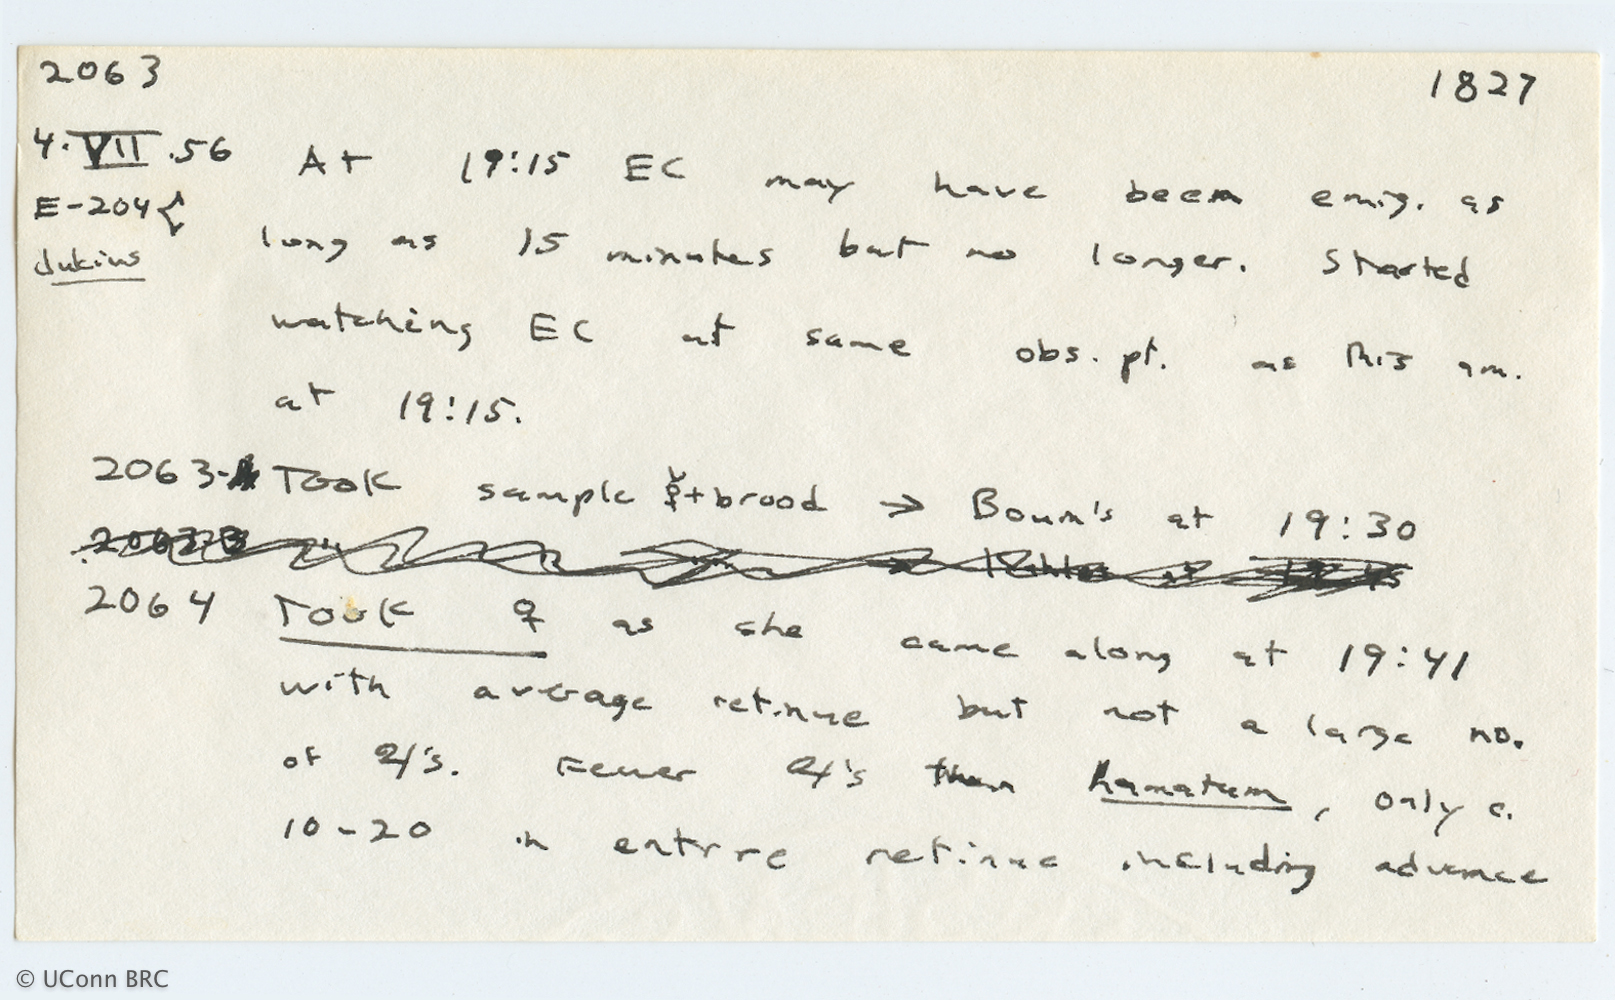 2063 1827
4.VII.56 At 19:15 EC may have been emig. as
E-204 long as 15 minutes but no longer. Started
dulcius watching EC at same obs. pt. as this am.
at 19:15.
2063- Took sample ☿+brood → Boum's at 19:30
2064 Took ♀ as she came along at 19:41
with average retinue but not a large no.
of 2/'s. Fewer 2/'s than hamatum, only c.
10-20 in entire retinue including advance
© UConn BRC